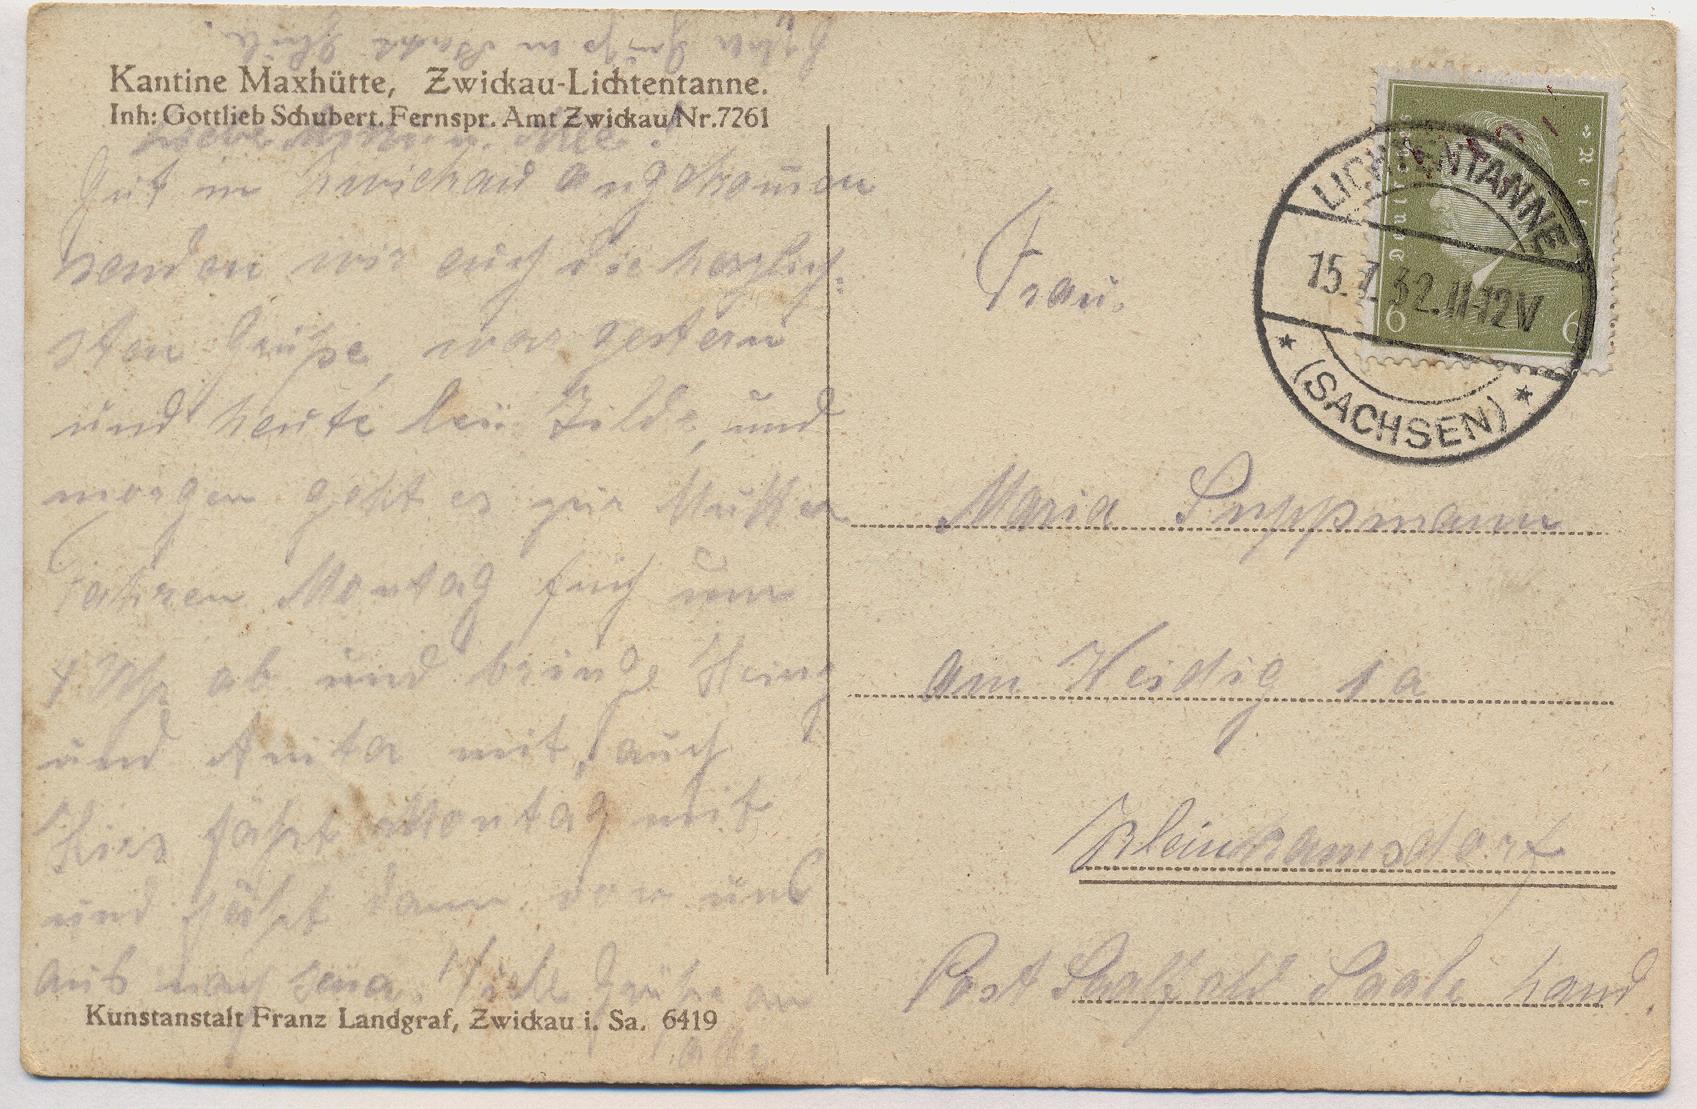 Kantine Maxhütte, Zwickau-Lichtentanne.
Inh: Gottlieb Schubert. Fernspr. Amt Zwickau Nr.7261
Gut in Zwickau angekommen
senden wir euch die herzlich-
sten Grüße, war gestern
und heute bei Hilde, und
morgen geht es zur Mutter
Fahren Montag früh um
4 Uhr ab und bringe Heinz
und Anita mit, auch
fährt Montag mit
und fährt dann von uns
aus nach Jena. Viele Grüße an
alle.
Kunstanstalt Franz Landgraf, Zwickau i. Sa. 6419
Deutsches Reich
6 6
LICHTENTANNE
15.7.32.11-12V
* (SACHSEN) *
Frau.
Maria
am Heidig 1a
Kleinkamsdorf
Post Saalfeld Saale Land.